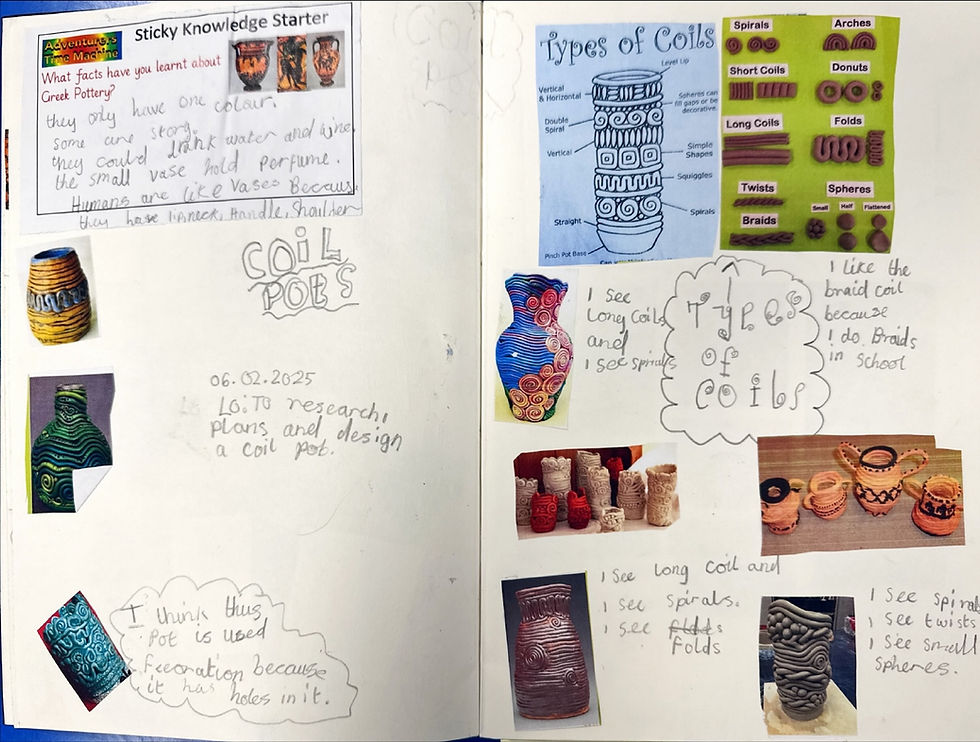 Sticky Knowledge Starter
Adventurers
Time Machine
What facts have you learnt about
Greek Pottery?
they only have one colour.
some are story.
they could drink water and wine.
the small vase hold perfume.
Humans are like Vases Because
they have lip, neck, Handle, Shoulder
COiL
POtS
06.02.2025
LO:TO research,
plans and design
a coil pot.
I think thus
Pot is used
Fecoration because
it has holes in it.
Types of Coils
Level Up
Vertical
& Horizontal
Spheres can
fill gaps or be
decorative.
Double
Spiral
Vertical
Simple
Shapes
Squiggles
Spirals
Straight
Pinch Pot Base
Spirals
Arches
Short Coils
Donuts
Long Coils
Folds
Twists
Spheres
Small
Half
Flattened
Braids
I see
Long Coils
and
I see spirals
Types
of
coils
I like the
braid coil
because
I do Braids
in school
I see long coil and
I see spirals.
I see
folds
I see spirals
I see twists
I see small
spheres.